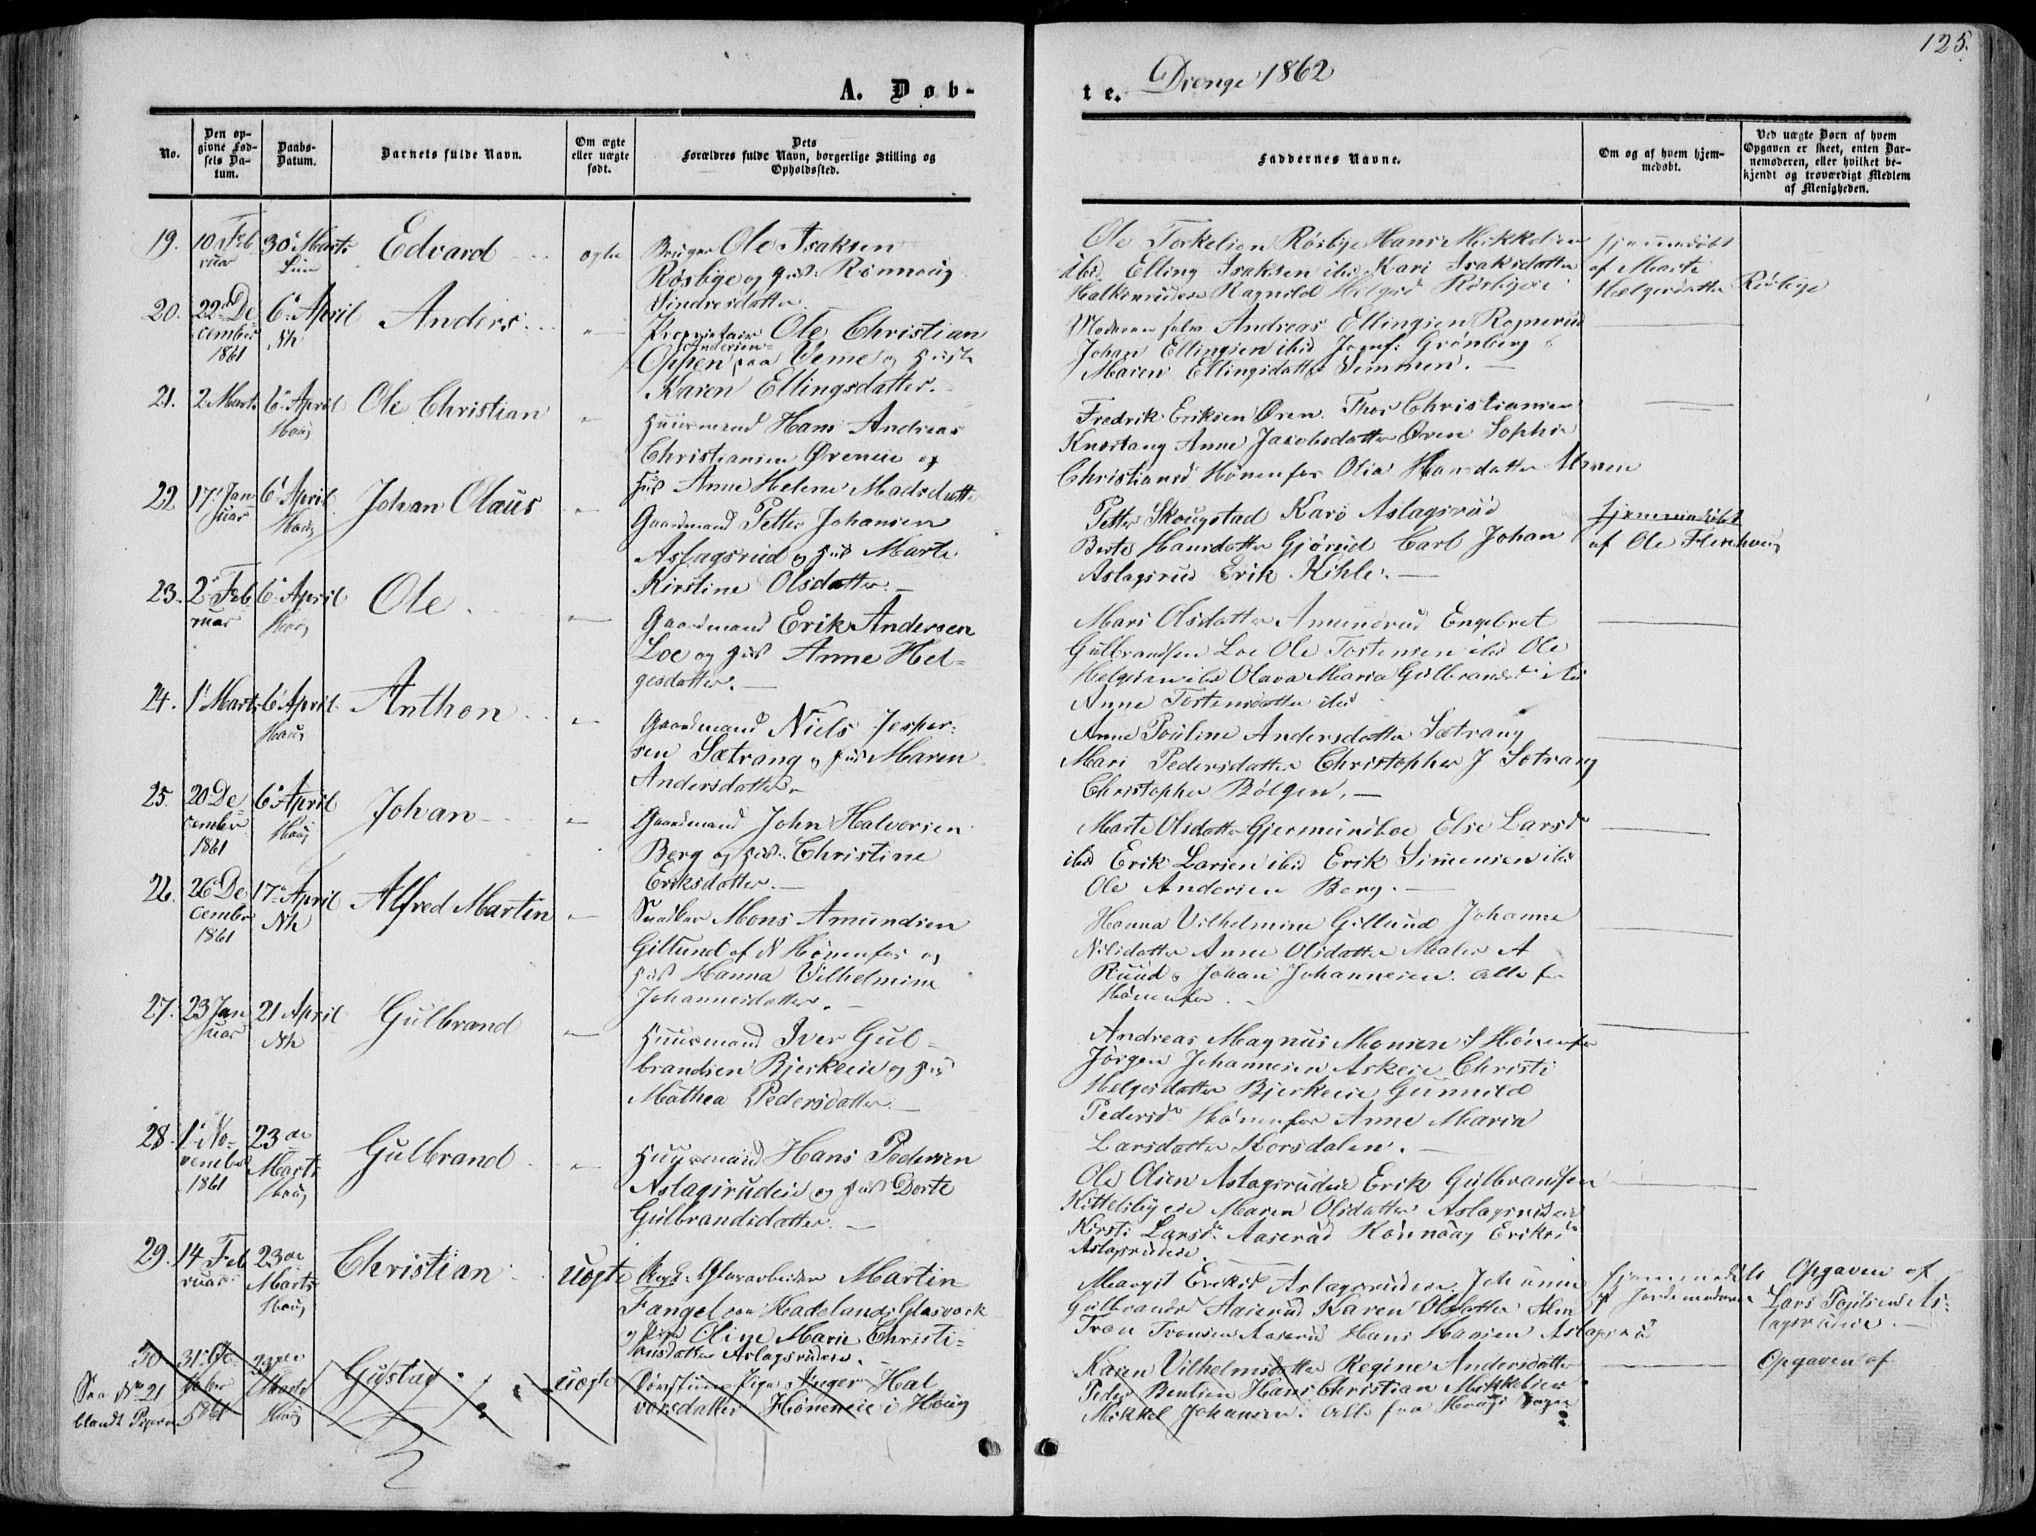 125.
A. Døb-
te. Drenge 1862
No.
Den op-
givne Fød-
sels Da-
tum.
Daabs-
Datum.
Barnets fulde Navn.
Om ægte
eller uægte
født.
Dets
Forældres fulde Navn, borgerlige Stilling og
Opholdssted.
Faddernes Navne.
Om og af hvem hjem-
medøbt.
Ved uægte Børn af hvem
Opgaven er skeet, enten Bar-
nemoderen, eller hvilket be-
kjendt og troværdigt Medlem
af Menigheden.
19. 10 Feb
ruar
30' Marts
Edvard
ægte
Bruger Ole Isaksen
Røsbye og Hust. Rønnaug
Sindresdatter
Ole Torkelsen Røsbye Hans Mikkelsen
ibid Elling Isaksen ibid Kari Isaksdatter
Ragnild Helgesd Røsbyeie
Hjemmedøbt
af Marte
Helgesdatter Røsbye
20. 22 De
cember
1861
6' April
Nh
Anders
"
Proprietair Ole Christian
Andersen
Oppen paa Veme og Hustr
Karen Ellingsdatter.
Moderen selv Andreas Ellingsen Rognerud
Johan Ellingsen ibid Jomf: Grønberg
Maren Ellingsdatter Vemmen. —
21. 2 Marts
6' April
Houg
Ole Christian
"
Huusmand Hans Andreas
Christiansen Øreneie og
Hus Anne Helene Madsdatter
Fredrik Eriksen Øren Thor Christiansen
Knestang Anne Jacobsdatter Øren Sophie
Christiansd Hønenfos Olia Hansdatter
22 17' Jan
uar
6' April
Houg
Johan Olaus
"
Gaardmand Petter Johansen
Aslagsrud og Hus Marte
Kirstine Olsdatter. —
Petter Skougstad Karo Aslagsrud
Berte Hansdatter Gjørud Carl Johan
Aslagsrud Erik Kihle. —
Hjemmedøbt
af Ole
23. 2' Feb
ruar
6' April
Houg
Ole
"
Gaardmand Erik Andersen
Loe og Hus Anne Hel-
gesdatter. —
Mari Olsdatter Amundrud Engebret
Gulbrandsen Loe Ole Tostensen ibid Ole
Helgesen ibid Olava Maria Gulbrandsd ibid
Anne Tostensdatter ibid
24. 1' Marts
6' April
Houg
Anthon
"
Gaardmand Niels Jesper-
sen Sætrang og Hus Maren
Andersdatter. —
Anne Pouline Andersdatter Sætrang
Mari Pedersdatter Christopher J Sætrang
Christopher Bølgen. —
25. 20 De
cember
1861
6' April
Houg
Johan
"
Gaardmand John Halvorsen
Berg og Hus. Christine
Eriksdatter. —
Marte Olsdatter Gjermundboe Else Larsd
ibid Erik Larsen ibid Erik Simensen ibid
Ole Andersen Berg. —
26. 26 De
cember
1861
17' April
Nh
Alfred Martin
"
Snedker Mons Amundsen
Gillund af N Hønenfos og
Hus Hanna Vilhelmine
Johannesdatter. —
Hanna Vilhelmine Gillund Johanne
Nilsdatter Anne Olsdatter Maler A
Ruud, Johan Johannesen. alle fr
Hønenfos. —
27. 23 Jan
uar
21 April
Nh
Gulbrand
"
Huusmand Iver Gul-
brandsen Bjerkeeie og Hus
Mathea Pedersdatter —
Andreas Magnus Monsen N Hønenfos
Jørgen Johannesen Askeie Christi
Helgesdatter Bjerkeeie Gunnild
Pedersd Hønenfos Anne Maria
Larsdatter Korsdalen. —
28. 1' No-
vember
1861
23de
Marts
Houg
Gulbrand
"
Huusmand Hans Pedersen
Aslagsrudeie og Hus Dorte
Gulbrandsdatter. —
Ole Olsen Aslagsrudeie Erik Gulbrandsen
Kittelsbyeie Maren Olsdatter Aslagsrudeie
Kirsti Larsd Aaserud Rønnaug Eriksd
Aslagsrudeie.
29. 14 Feb
ruar
23de
Marts
Houg
Christian
uægte
Glasarbeider Martin
Fangel paa Hadelands Glasværk
og Pige Oline Marie Christi-
ansdatter Aslagsrudeie.
Margit Eriksd Aslagsrudeie Johanne
Gulbrandsd Aaserud Karen Olsdatter
Tron Tronsen Aaserud Hans Hansen Aslagsrud
Hjemmedøbt
af Jordemoderen
Opgaven af
Lars Poulsen As-
lagsrudeie. —
30 31' Oc-
tober
1861
23de
Marts
Houg
Gustav
uægte
Pige Inger Hal
vorsdatter Høneneie i Houg
Karen Vilhelmsdatter Regine Andersdatter
Peder Bentsen Hans Christian Mikkelsen
Mikkel Johansen. alle fra Hougs Sogn
Opgaven af
See No 21
blandt Pigerne